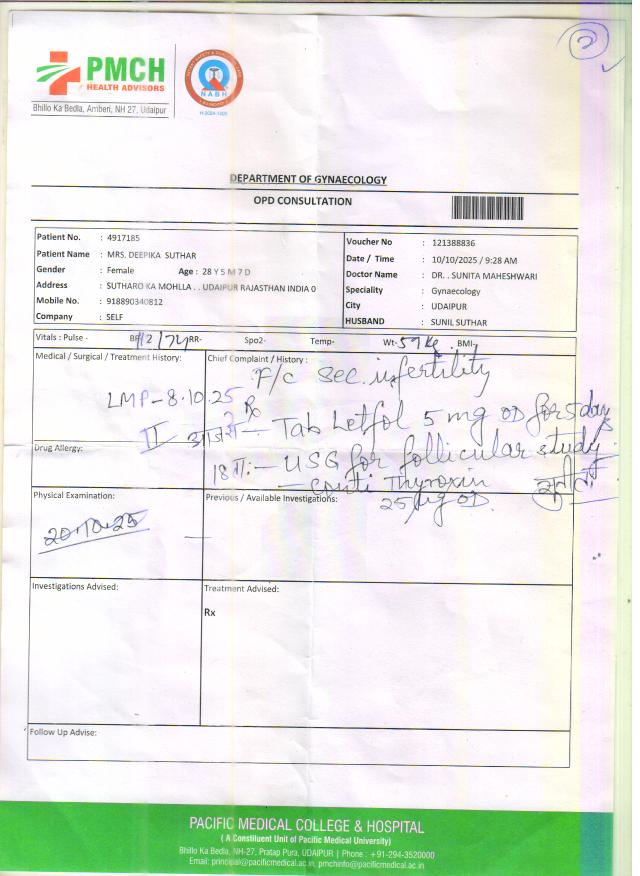 2
PMCH
HEALTH ADVISORS
Bhillo Ka Bedla, Amberi, NH 27, Udaipur
NABH
DEPARTMENT OF GYNAECOLOGY
OPD CONSULTATION
Patient No. : 4917185
Patient Name : MRS. DEEPIKA SUTHAR
Gender : Female Age : 28 Y 5 M 7 D
Address : SUTHARO KA MOHLLA . . UDAIPUR RAJASTHAN INDIA 0
Mobile No. : 918890340812
Company : SELF
Voucher No : 121388836
Date / Time : 10/10/2025 / 9:28 AM
Doctor Name : DR. . SUNITA MAHESHWARI
Speciality : Gynaecology
City : UDAIPUR
HUSBAND : SUNIL SUTHAR
Vitals : Pulse - BP 112/74 RR- Spo2- Temp- Wt- 57 Kg. BMI-
Medical / Surgical / Treatment History: Chief Complaint / History :
F/c Sec. infertility
LMP-8.10.25
Rx
II आज से - Tab Letfol 5 mg OD for 5 days
Drug Allergy:
18 ता:- USG for follicular study
- conti Thyroxin
25 µg OD.
Physical Examination: Previous / Available Investigations:
20.10.25
Investigations Advised: Treatment Advised:
Rx
Follow Up Advise:
PACIFIC MEDICAL COLLEGE & HOSPITAL
( A Constituent Unit of Pacific Medical University)
Bhillo Ka Bedla, NH-27, Pratap Pura, UDAIPUR | Phone : +91-294-3520000
Email: principal@pacificmedical.ac.in, pmchinfo@pacificmedical.ac.in